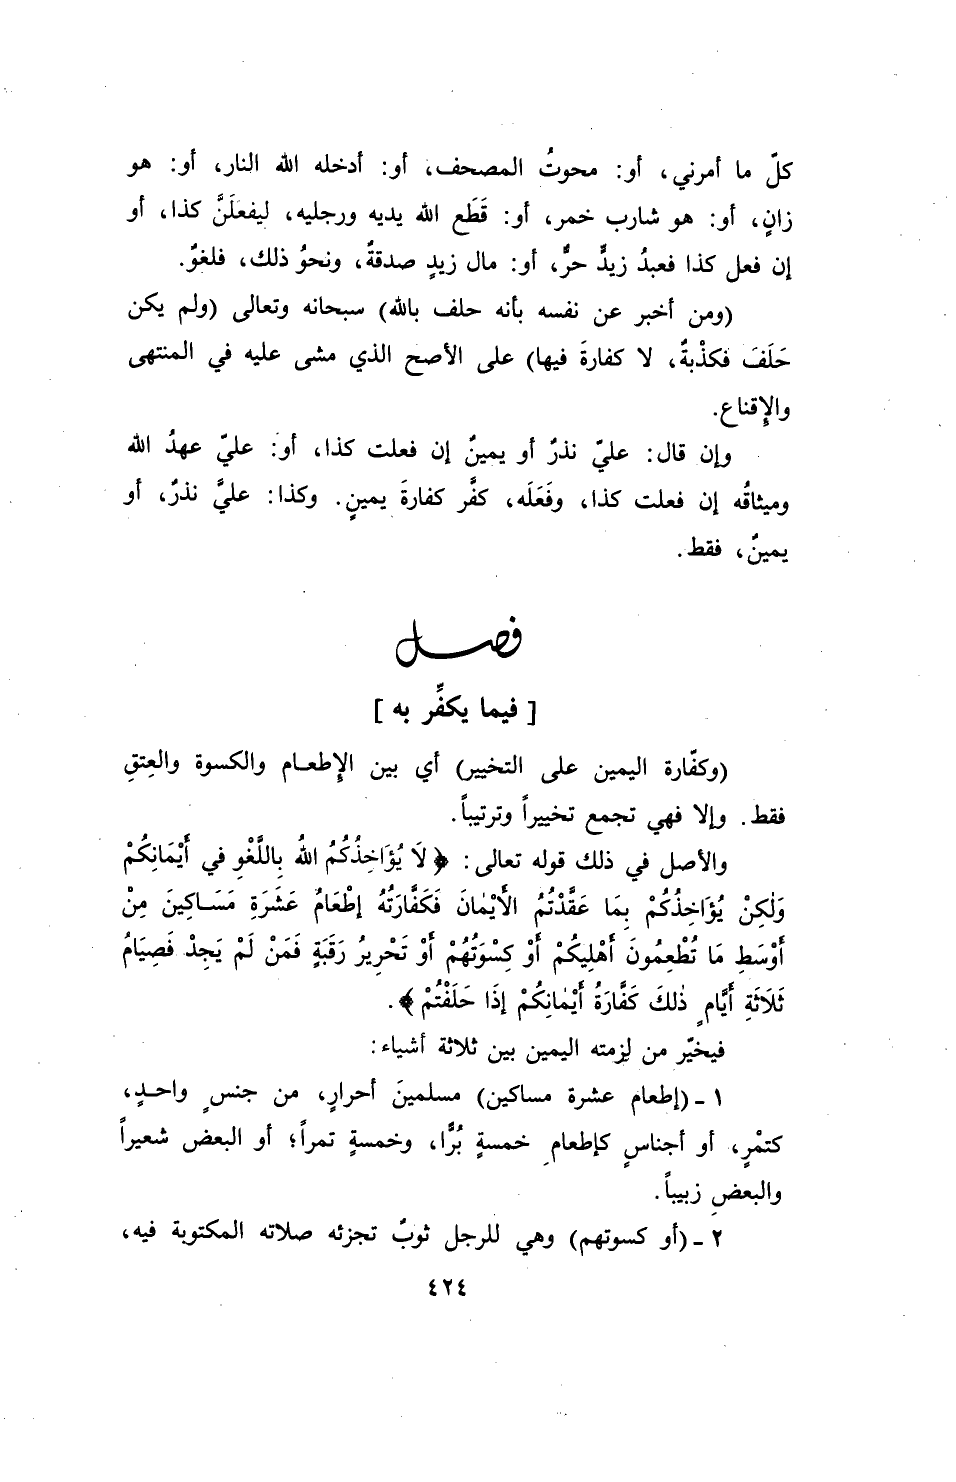 كلّ ما أمرني، أو: محوتُ المصحف، أو: أدخله الله النار، أو: هو
زانٍ، أو: هو شارب خمر، أو: قَطَع الله يديه ورجليه، ليفعلَنَّ كذا، أو
إن فعل كذا فعبدُ زيدٍ حرٌّ، أو: مال زيدٍ صدقةٌ، ونحوُ ذلك، فلغوٌ.
(ومن أخبر عن نفسه بأنه حلف بالله) سبحانه وتعالى (ولم يكن
حَلَفَ فكذْبةٌ، لا كفارةَ فيها) على الأصح الذي مشى عليه في المنتهى
والإِقناع.
وإن قال: عليّ نذرٌ أو يمينٌ إن فعلت كذا، أو: عليّ عهدُ الله
وميثاقُه إن فعلت كذا، وفَعَلَه، كفَّر كفارةَ يمينٍ. وكذا: عليَّ نذرٌ، أو
يمينٌ، فقط.
فصل
[ فيما يكفِّر به ]
(وكفّارة اليمين على التخيير) أي بين الإِطعام والكسوة والعِتقِ
فقط. وإلا فهي تجمع تخييراً وترتيباً.
والأصل في ذلك قوله تعالى: ﴿لَا يُؤَاخِذُكُمُ اللهُ بِاللَّغْوِ في أَيْمَانِكُمْ
وَلٰكِنْ يُؤَاخِذُكُمْ بِمَا عَقَّدْتُمُ الأَيْمٰانَ فَكَفَّارَتُهُ إطْعَامُ عَشَرَةِ مَسَاكِينَ مِنْ
أَوْسَطِ مَا تُطْعِمُونَ أَهْلِيكُمْ أَوْ كِسْوَتُهُمْ أَوْ تَحْرِيرُ رَقَبَةٍ فَمَنْ لَمْ يَجِدْ فَصِيَامُ
ثَلَاثَةِ أَيَّامٍ ذٰلكَ كَفَّارَةُ أَيْمٰانِكُمْ إذَا حَلَفْتُمْ﴾.
فيخيّر من لزمته اليمين بين ثلاثة أشياء:
١ ـ (إطعام عشرة مساكين) مسلمينَ أحرارٍ، من جنسٍ واحدٍ،
كتمْرٍ، أو أجناسٍ كإطعامِ خمسةٍ بُرًّا، وخمسةٍ تمراً؛ أو البعض شعيراً
والبعضِ زبيباً.
٢ ـ (أو كسوتهم) وهي للرجل ثوبٌ تجزئه صلاته المكتوبة فيه،
٤٢٤